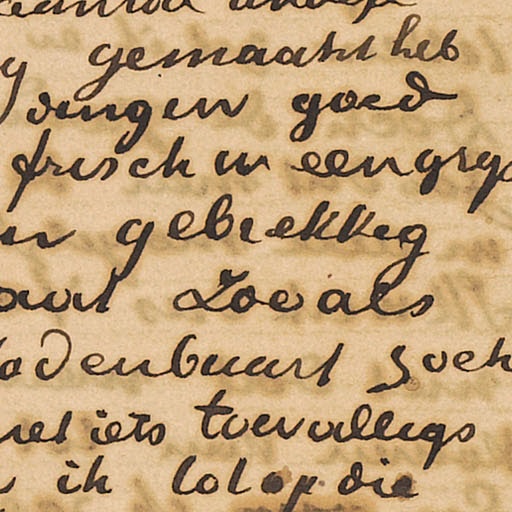 y gemaakt heb
dingen goed
frisch in een grys
en gebrekkig
aat Zooals
odenbuurt Zoek
niet iets toevalligs
ik lol op die